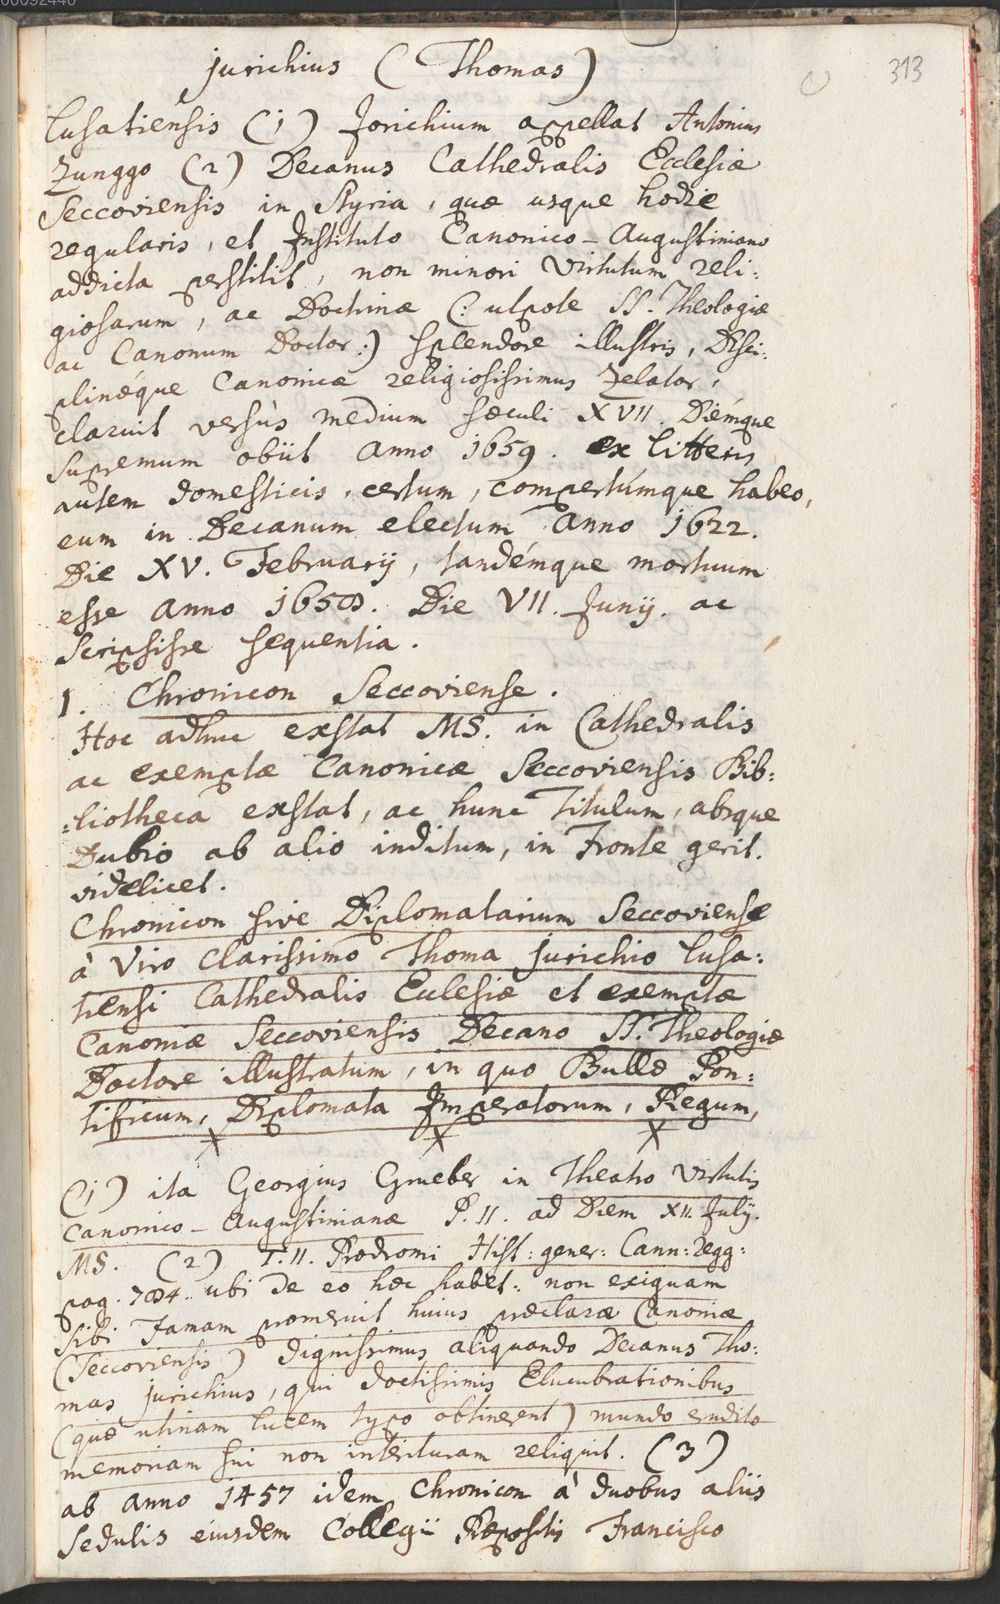 00092440
313
Jurichius ( Thomas )
Lusatiensis (1) Jorichium appellat Antonius
Zunggo (2) Decanus Cathedralis Ecclesiæ
Seccoviensis in Styria, quæ usque hodie
regularis, et Instituto Canonico-Augustiniano
addicta perstitit, non minori Virtutum reli:
giosarum, ac Doctrinæ (: utpote SS. Theologiæ
ac Canonum Doctor :) splendore illustris, Disci:
plinæque Canonicæ religiosissimus Zelator,
claruit versùs medium sæculi XVII Diémque
supremum obiit Anno 1659. ex litteris
autem domesticis, certum, compertúmque habeo,
eum in Decanum electum Anno 1622.
Die XV. Februarij, tandémque mortuum
esse Anno 1658. Die VII. Junij. ac
Scripsisse sequentia.
1. Chronicon Seccoviense.
Hoc adhuc exstat MS. in Cathedralis
ac exemptæ Canonicæ Seccoviensis Bib:
:liotheca exstat, ac hunc Titulum, absque
Dubio ab alio inditum, in Fronte gerit.
videlicet.
Chronicon sive Diplomatarium Seccoviense
à Viro Clarissimo Thoma Jurichio Lusa:
tiensi Cathedralis Eclesiæ et exemptæ
Canoniæ Seccoviensis Decano SS. Theologiæ
Doctore illustratum, in quo Bullæ Pon:
tificum, Diplomata Imperatorum, Regum,
(1) ita Georgius Grueber in Theatro Virtutis
Canonico-Augustinianæ P. II. ad Diem XII. Julij.
MS. (2) T. II. Prodromi Hist: gener: Cann: regg:
pag. 784. ubi de eo hæc habet: non exiguam
sibi Famam promeruit huius præclaræ Canoniæ
(Seccoviensis) dignissimus aliquando Decanus Tho:
mas Jurichius, qui doctissimis Elucubrationibus
(quæ utinam lucem typo obtinerent) mundo erudito
memoriam sui non interituram reliquit. (3)
ab anno 1457 idem Chronicon à duobus aliis
sedulis eiusdem Collegii Præpositis Francisco